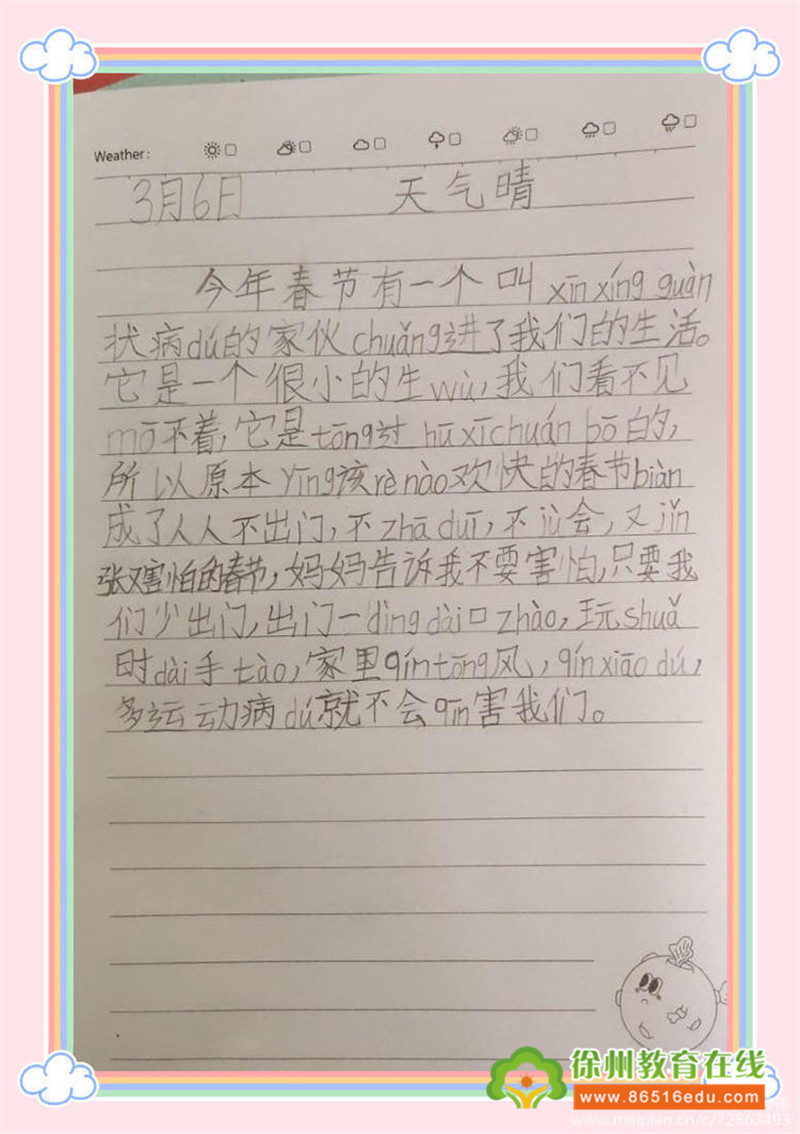 Weather:
3月6日 天气晴
今年春节有一个叫xīn xíng guàn
状病dú的家伙chuǎng进了我们的生活。
它是一个很小的生wù,我们看不见
mō不着,它是tōng过hū xī chuán bō的,
所以原本yīng该rè nào欢快的春节biàn
成了人人不出门,不zhā duī,不jù会,又jǐn
张又害怕的春节,妈妈告诉我不要害怕,只要我
们少出门,出门一dìng dài口zhào,玩shuǎ
时dài手tào,家里qín tōng风,qín xiāo dú,
多运动病dú就不会qīn害我们。
徐州教育在线
www.86516edu.com
www.meipian.cn/c/72863493